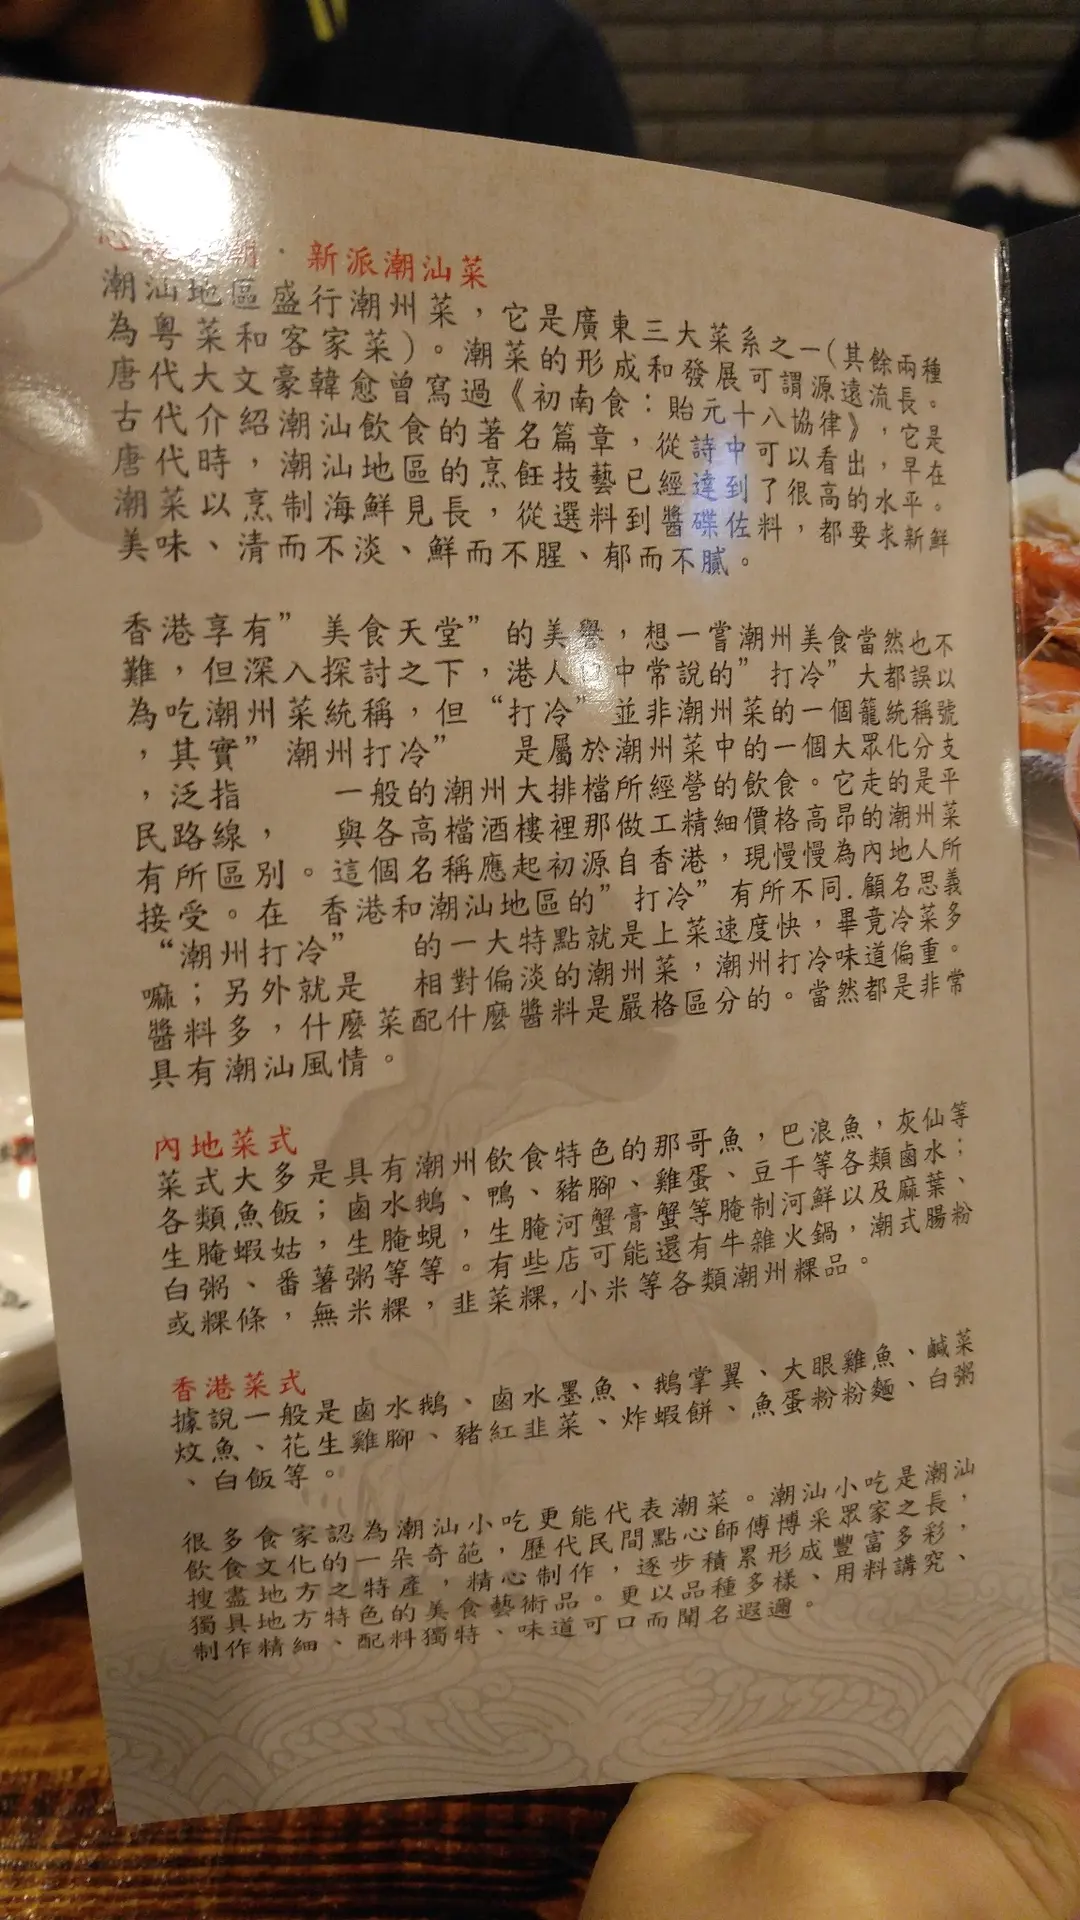 · 新派潮汕菜
潮汕地區盛行潮州菜，它是廣東三大菜系之一(其餘兩種
為粵菜和客家菜)。潮菜的形成和發展可謂源遠流長。
唐代大文豪韓愈曾寫過《初南食：貽元十八協律》，它是
古代介紹潮汕飲食的著名篇章，從詩中可以看出，早在
唐代時，潮汕地區的烹飪技藝已經達到了很高的水平。
潮菜以烹制海鮮見長，從選料到醬碟佐料，都要求新鮮
美味、清而不淡、鮮而不腥、郁而不膩。
香港享有”美食天堂”的美譽，想一嘗潮州美食當然也不
難，但深入探討之下，港人口中常說的”打冷”大都誤以
為吃潮州菜統稱，但“打冷”並非潮州菜的一個籠統稱號
，其實”潮州打冷” 是屬於潮州菜中的一個大眾化分支
，泛指 一般的潮州大排檔所經營的飲食。它走的是平
民路線， 與各高檔酒樓裡那做工精細價格高昂的潮州菜
有所區別。這個名稱應起初源自香港，現慢慢為內地人所
接受。在 香港和潮汕地區的”打冷”有所不同.顧名思義
“潮州打冷” 的一大特點就是上菜速度快，畢竟冷菜多
嘛；另外就是 相對偏淡的潮州菜，潮州打冷味道偏重。
醬料多，什麼菜配什麼醬料是嚴格區分的。當然都是非常
具有潮汕風情。
內地菜式
菜式大多是具有潮州飲食特色的那哥魚，巴浪魚，灰仙等
各類魚飯；鹵水鵝、鴨、豬腳、雞蛋、豆干等各類鹵水；
生腌蝦姑，生腌蜆，生腌河蟹膏蟹等腌制河鮮以及麻葉、
白粥、番薯粥等等。有些店可能還有牛雜火鍋，潮式腸粉
或粿條，無米粿，韭菜粿,小米等各類潮州粿品。
香港菜式
據說一般是鹵水鵝、鹵水墨魚、鵝掌翼、大眼雞魚、鹹菜
炆魚、花生雞腳、豬紅韭菜、炸蝦餅、魚蛋粉粉麵、白粥
、白飯等。
很多食家認為潮汕小吃更能代表潮菜。潮汕小吃是潮汕
飲食文化的一朵奇葩，歷代民間點心師傅博采眾家之長，
搜盡地方之特產，精心制作，逐步積累形成豐富多彩，
獨具地方特色的美食藝術品。更以品種多樣、用料講究、
制作精細、配料獨特、味道可口而聞名遐邇。